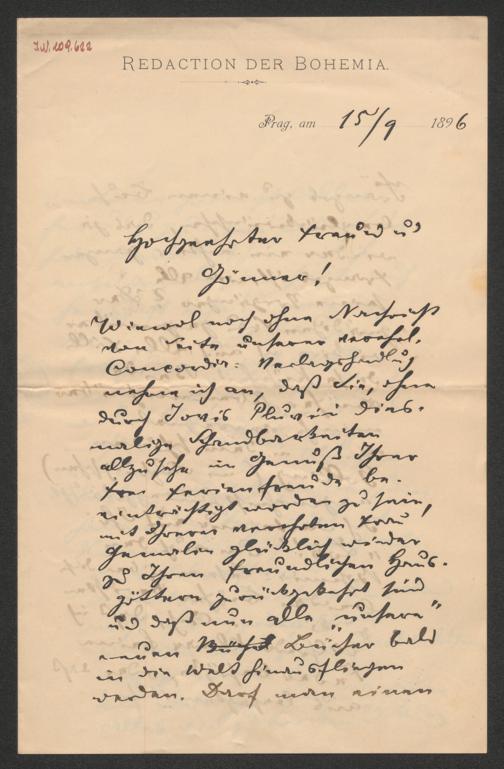 I.N. 109.622
REDACTION DER BOHEMIA.
Prag, am 15/9 1896
Hochgeehrter Freund u
Gönner!
Wiewol noch ohne Nachricht
von Seite unserer verehrl.
Concordia-Verlagshandlug
nehme ich an, daß Sie, ohne
durch Jovis Pluvii dies-
malige Schandbarkeiten
allzusehr in Genuß Ihrer
frei Ferienfreude be-
einträchtigt worden zu sein,
mit Ihrer verehrten Frau
Gemalin glücklich wieder
zu Ihren freundlichen Haus-
göttern zurückgekehrt sind
und daß nun alle "unsere"
neuen Bücher bald
in die Welt hinausfliegen
werden. Darf man einen